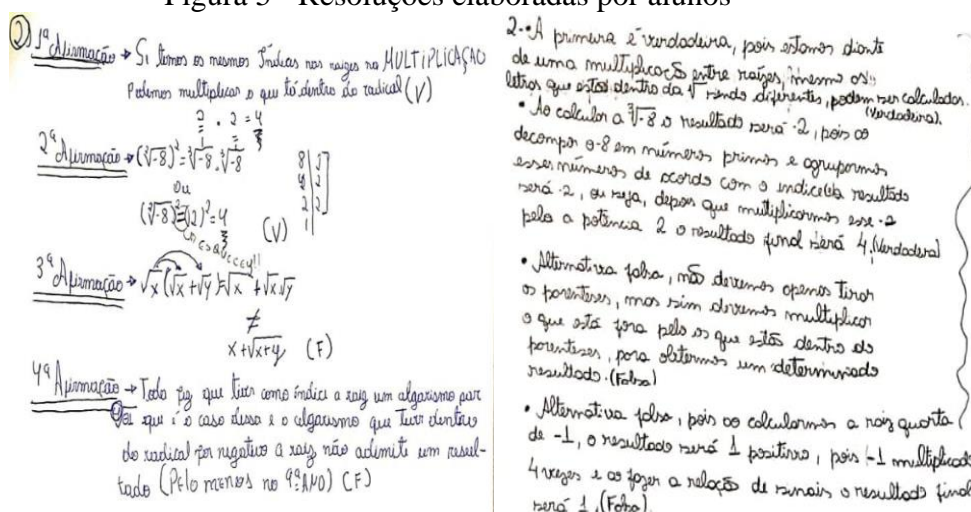 Figura 3 - Resoluções elaboradas por alunos
2) 1ª Afirmação → Si temos os mesmos Índices nas raizes na MULTIPLICAÇÃO
Podemos multiplicar o que tá dentro do radical (V)
2ª Afirmação → (∛-8)² = ∛-8 . ∛-8
2 . 2 = 4
8 2
4 2
2 2
1
ou
(∛-8)² = (2)² = 4
(V)
3ª Afirmação → √x (√x + √y) = √x + √x √y
≠
x + √x+y (F)
4ª Afirmação → Toda raiz que tiver como índice a raiz um algarismo par
que é o caso dessa e o algarismo que tiver dentro
do radical for negativo a raiz não adimite um resul-
tado (Pelo menos no 9º ANO) (F)
2-•A primeira é verdadeira, pois estamos diante
de uma multiplicação entre raízes, mesmo os
letras que estão dentro da √ sendo diferentes, podem ser calculados.
(Verdadeira).
• Ao calcular a ∛-8 o resultado será -2, pois ao
decompor o -8 em números primos e agruparmos
esses números de acordo com o indice o resultado
será -2, ou seja, depois que multiplicarmos esse -2
pela a potência 2 o resultado final será 4. (Verdadeira)
• Alternativa falsa, não devemos apenas tirar
os parenteses, mas sim devemos multiplicar
o que está fora pelo os que estão dentro do
parenteses, para obtermos um determinado
resultado. (Falsa)
• Alternativa falsa, pois ao calcularmos a raiz quarta
de -1, o resultado será 1 positivo, pois -1 multiplicado
4 vezes e ao fazer a relação de sinais o resultado final
será 1. (Falso).